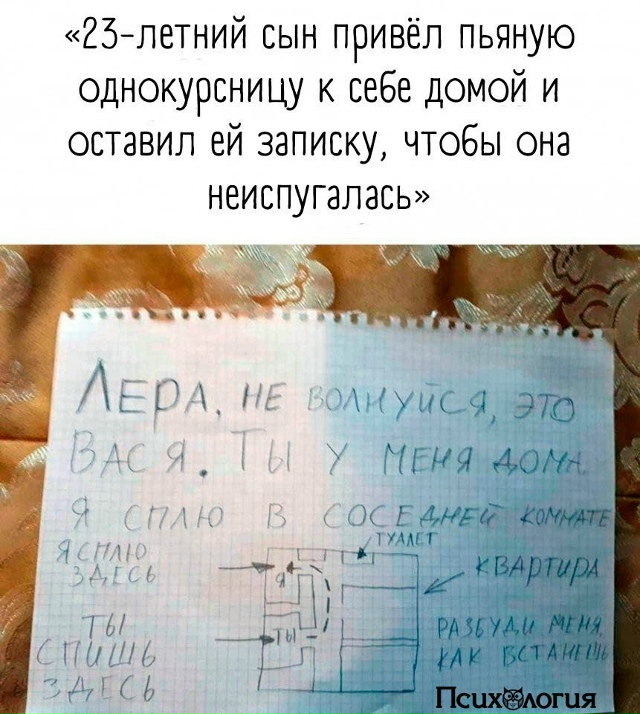 «23-летний сын привёл пьяную
однокурсницу к себе домой и
оставил ей записку, чтобы она
неиспугалась»
ЛЕРА, НЕ ВОЛНУЙСЯ, ЭТО
ВАСЯ. ТЫ У МЕНЯ ДОМА
Я СПЛЮ В СОСЕДНЕЙ КОМНАТЕ
ТУАЛЕТ
Я СПЛЮ
ЗДЕСЬ
Я
КВАРТИРА
ТЫ
СПИШЬ
ЗДЕСЬ
ТЫ
РАЗБУДИ МЕНЯ,
КАК ВСТАНЕШЬ
Психология